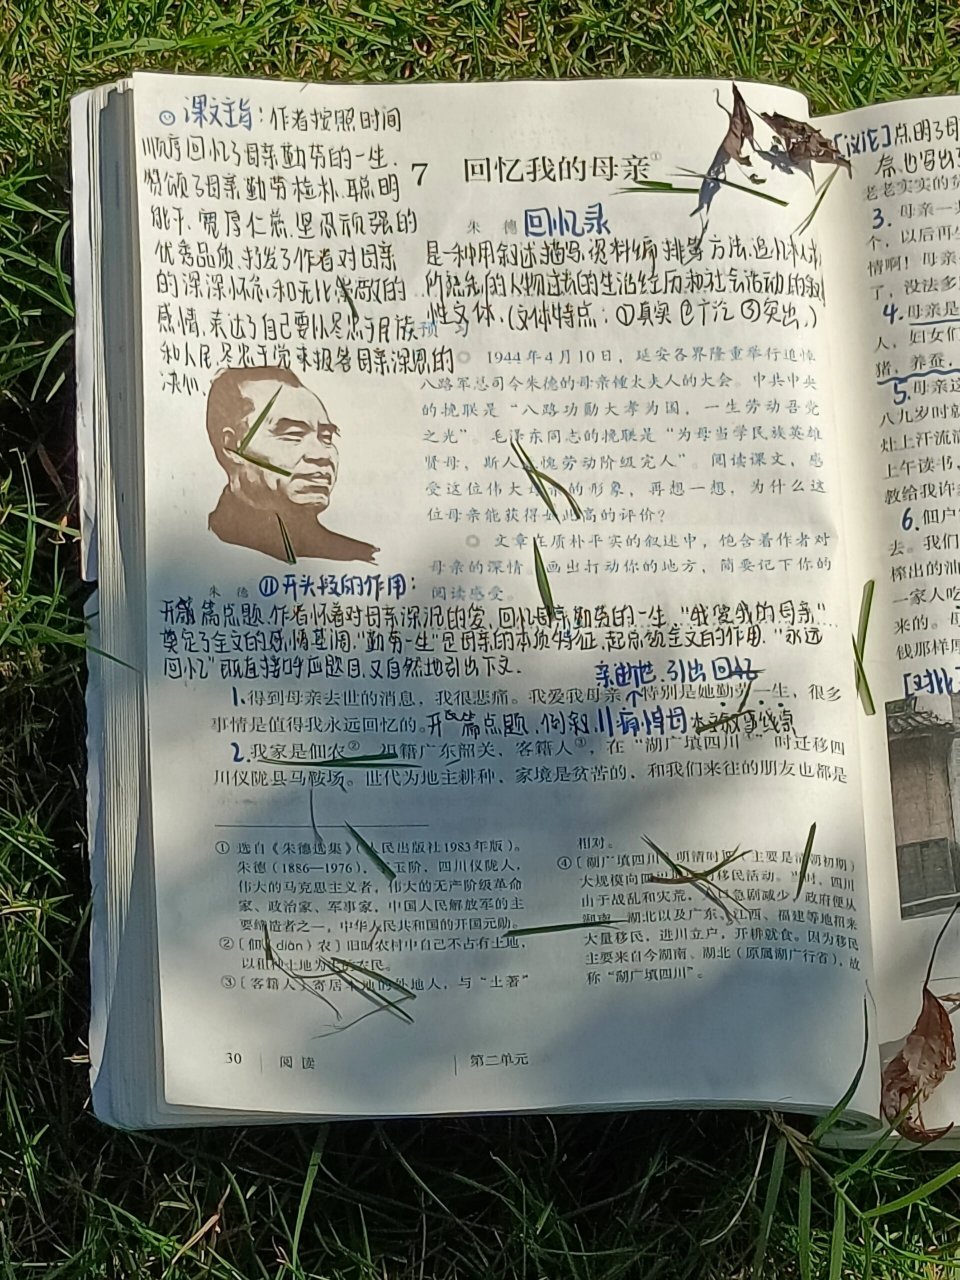 课文主旨：作者按照时间
顺序回忆了母亲勤劳的一生，
颂了母亲勤劳桂朴、聪明
能干、宽厚仁慈、坚忍顽强的
优秀品质，抒发了作者对母亲
的深深怀念和无比崇敬的
感情，表达了自己要以尽忠于民族
和人民、尽忠于党来报答母亲深恩的
决心
7 回忆我的母亲①
朱 德 回忆录
是一种用叙述、描写、资料编排等方法，追忆本人或
所熟知的人物过去的生活经历和社会活动的叙
性文体。(文体特点：①真实 ②广泛 ③突出。)
预 习
1944年4月10日，延安各界隆重举行追悼
八路军总司令朱德的母亲锺太夫人的大会。中共中央
的挽联是“八路功勋大孝为国，一生劳动吾党
之光”。毛泽东同志的挽联是“为母当学民族英雄
贤母，斯人无愧劳动阶级完人”。阅读课文，感
受这位伟大母亲的形象，再想一想，为什么这
位母亲能获得如此高的评价？
文章在质朴平实的叙述中，饱含着作者对
母亲的深情。画出打动你的地方，简要记下你的
阅读感受。
朱 德
⑪开头段的作用：
开篇点题，作者怀着对母亲深沉的爱，回忆母亲勤劳的一生，“我爱我的母亲”
奠定了全文的感情基调，“勤劳一生”是母亲的本质特征，起总领全文的作用，“永远
回忆”既直接呼应题目，又自然地引出下文.
亲逝世，引出回忆
1.得到母亲去世的消息，我很悲痛。我爱我母亲，特别是她勤劳一生，很多
事情是值得我永远回忆的。开篇点题，倒叙 痛悼母 叙事线索
2.我家是佃农②，祖籍广东韶关，客籍人③，在“湖广填四川”④时迁移四
川仪陇县马鞍场。世代为地主耕种，家境是贫苦的，和我们来往的朋友也都是
① 选自《朱德选集》（人民出版社1983年版）。
朱德（1886—1976），字玉阶，四川仪陇人，
伟大的马克思主义者，伟大的无产阶级革命
家、政治家、军事家，中国人民解放军的主
要缔造者之一，中华人民共和国的开国元勋。
② 〔佃（diàn）农〕旧时农村中自己不占有土地，
以租种土地为生的农民。
③ 〔客籍人〕寄居本地的外地人，与“土著”
相对。
④ 〔湖广填四川〕明清时期（主要是清初期）
大规模向四川的移民活动。当时，四川
由于战乱和灾荒，人口急剧减少，政府便从
湖南、湖北以及广东、江西、福建等地招来
大量移民，进川立户，开耕就食。因为移民
主要来自今湖南、湖北（原属湖广行省），故
称“湖广填四川”。
30 阅读 第二单元
[议论]点明了母
亲，也写出了
老老实实的贫
3. 母亲一共
个，以后再生
情啊！母亲
了，没法多
4.母亲是
人，妇女们
猪，养蚕，
5.母亲这
八九岁时就
灶上汗流满
上午读书，
教给我许
6. 佃户
去。我们
榨出的油
一家人吃
来的。母
钱那样厚
[对比]